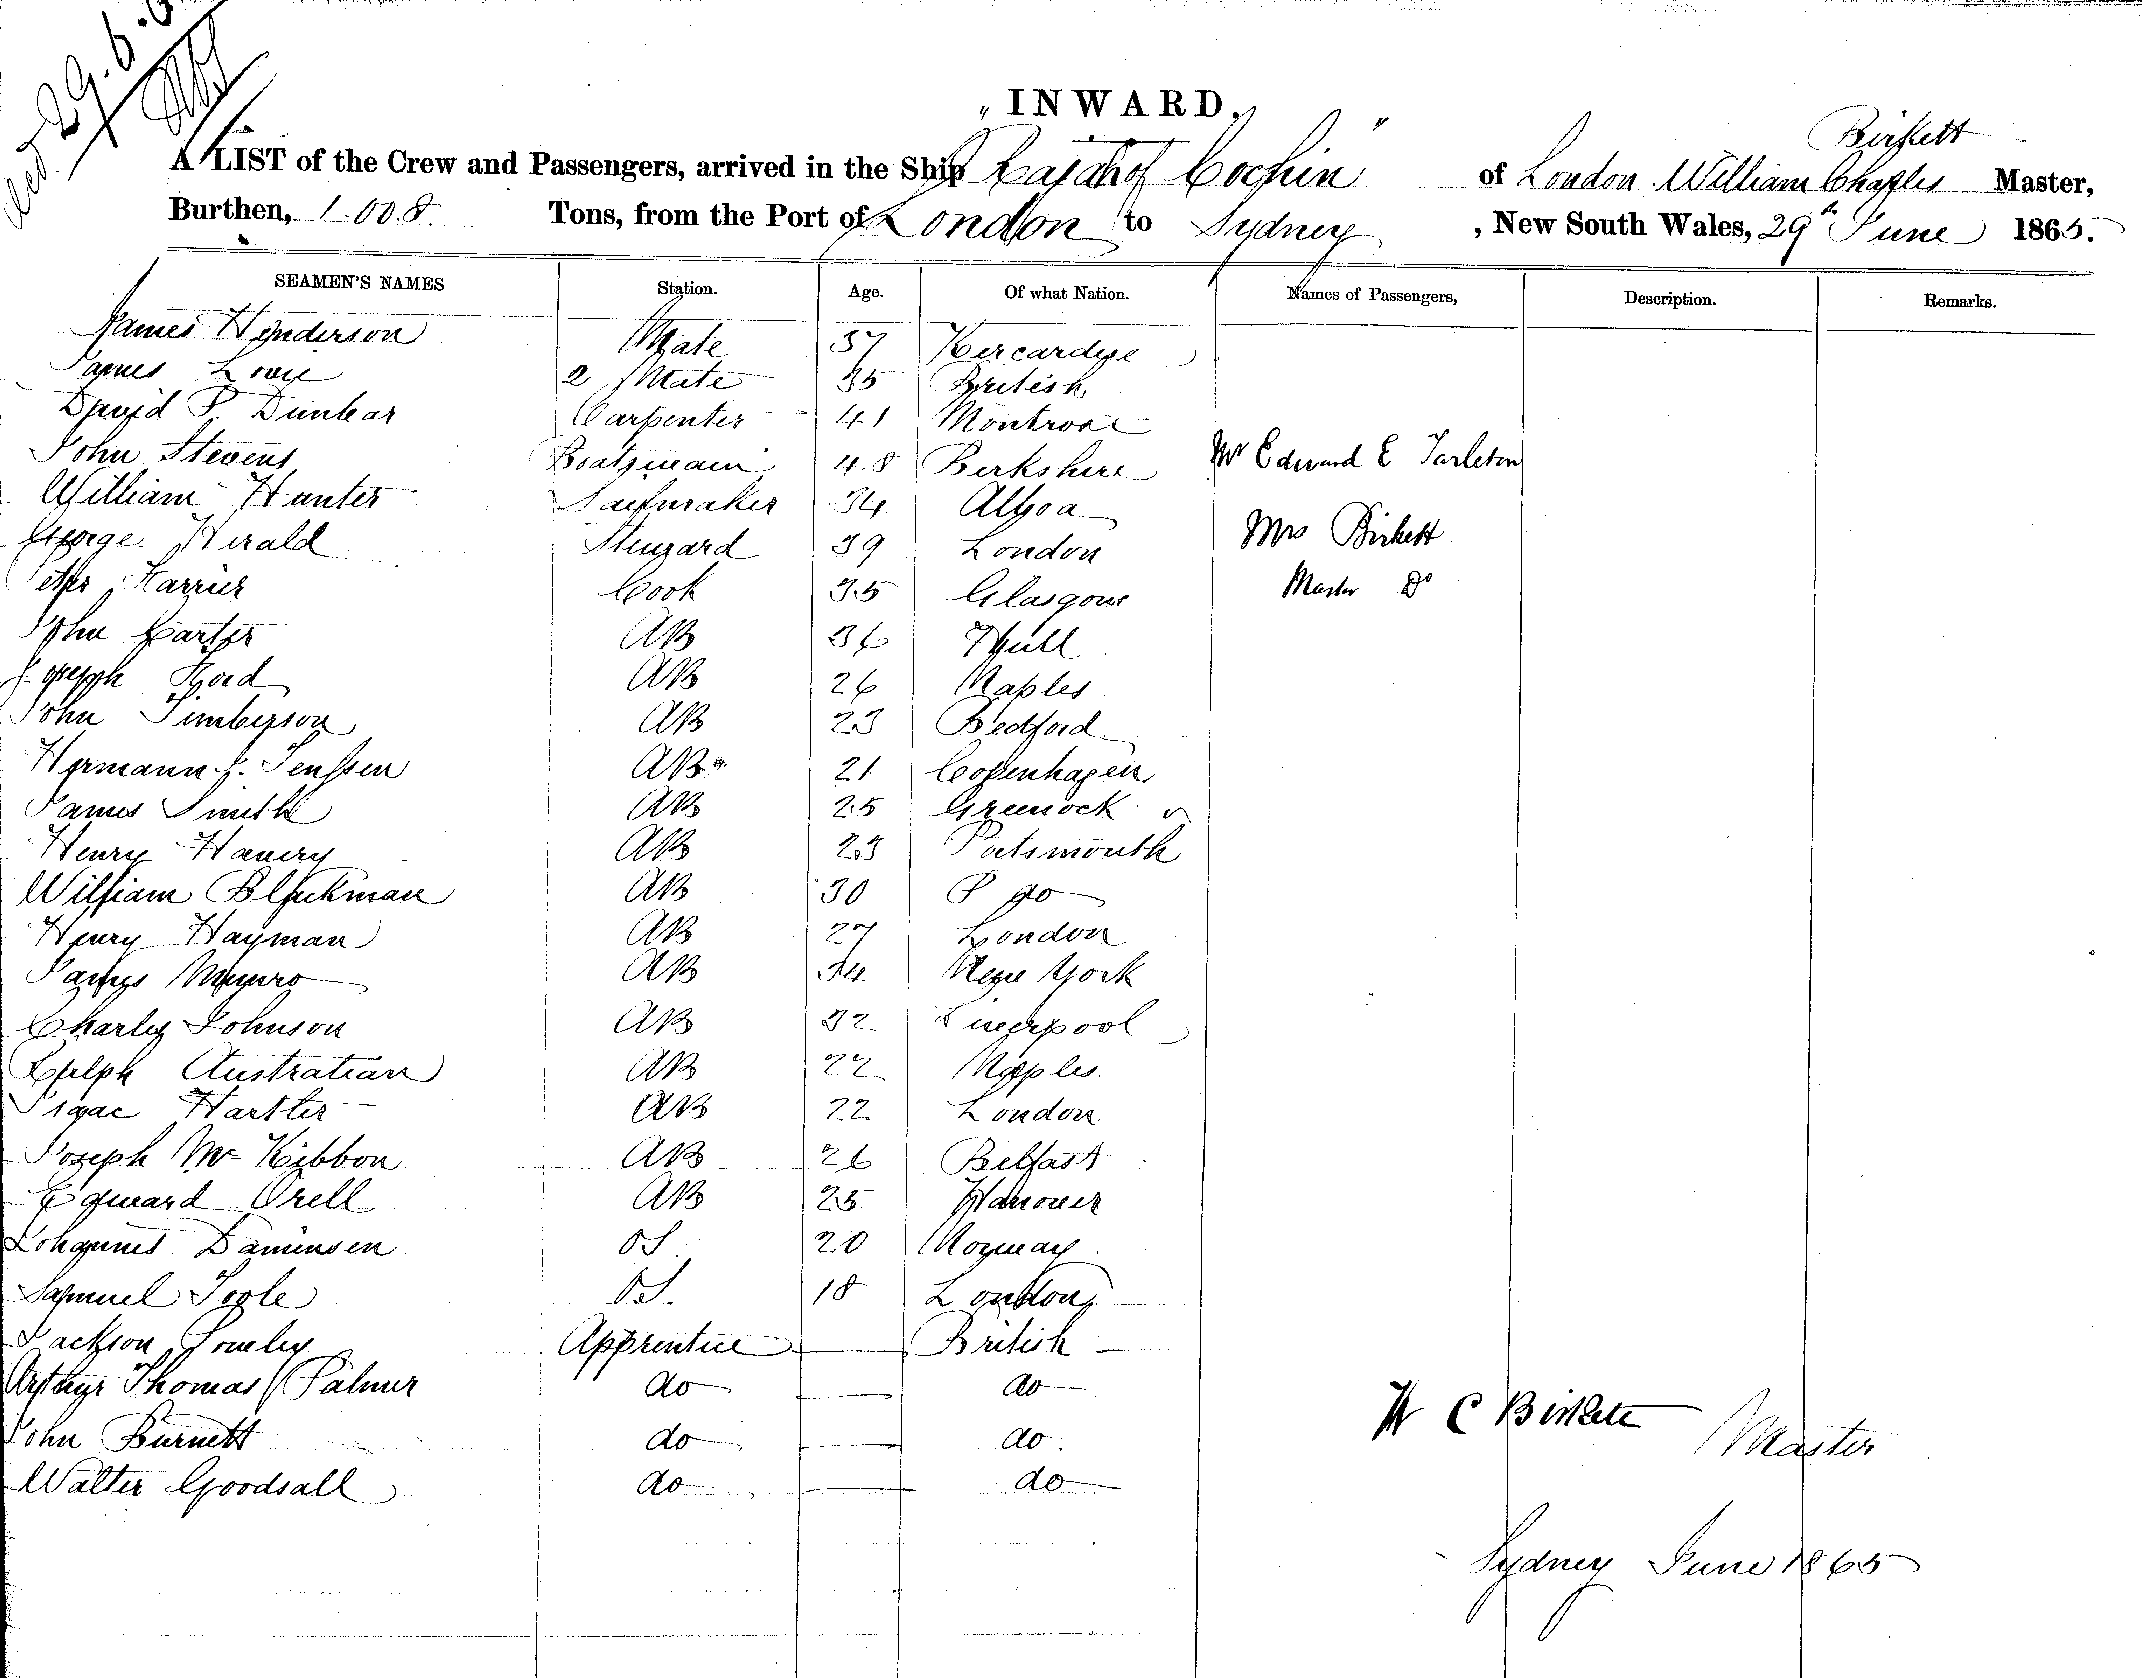 Rec. 29.6.6
„ INWARD.
Birkett
A LIST of the Crew and Passengers, arrived in the Ship "Rajah of Cochin" of London William Charles Master,
Burthen, 1008 Tons, from the Port of London to Sydney , New South Wales, 29th June 1865.
SEAMEN'S NAMES Station. Age. Of what Nation. Names of Passengers, Description. Remarks.
James Henderson Mate 37 Kercardye
James Lowe 2 Mate 35 British
David P. Dunbar Carpenter 41 Montrose
John Stevens Boatswain 48 Berkshire Mr Edward E Tarleton
William Hunter Sailmaker 34 Alloa
George Herald Steward 39 London Mrs Birkett
Peter Harrier Cook 35 Glasgow Master Do
John Carter AB 36 Hull
Joseph AB 26 Naples
John Timberson AB 23 Bedford
Hermann J. Jenssen AB 21 Copenhagen
James Smith AB 25 Greenock
Henry AB 23 Portsmouth
William Blackman AB 30 P do
Henry Hayman AB 27 London
James Munro AB 34 New York
Charley Johnson AB 32 Liverpool
Ralph AB 22 Naples
Isaac AB 22 London
Joseph Mc Kibbon AB 26 Belfast
Edward Orell AB 25 Hanover
Johannes OS 20 Norway
Samuel OS. 18 London
Jackson Apprentice British
Arthur Thomas Palmer do do
W C Birkett
John Burnett do do
Master
Walter Goodsall do do
Sydney June 1865